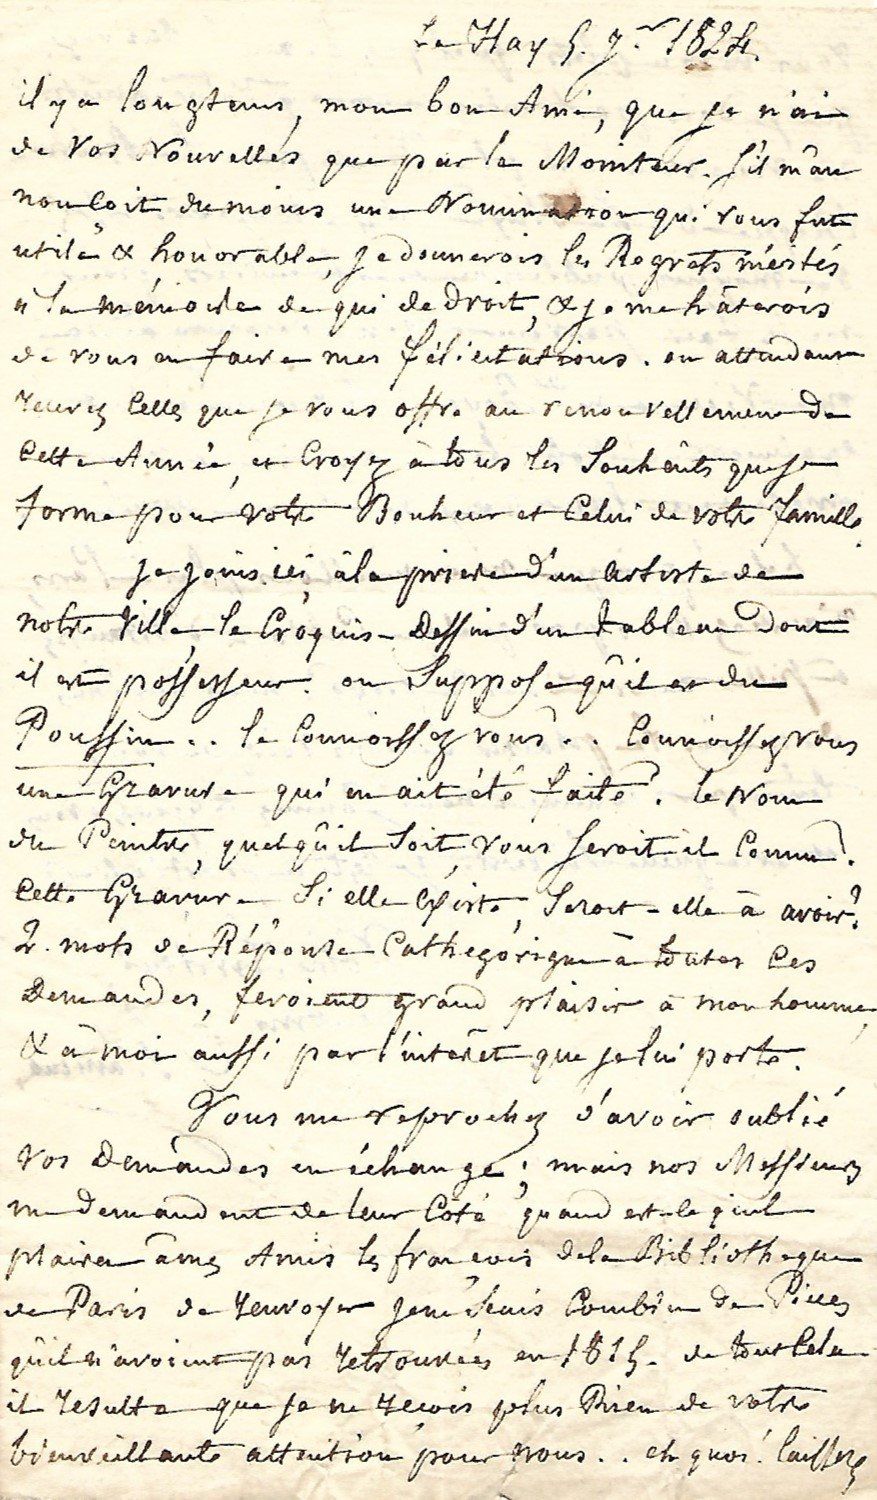 La Hay 5. Jr 1824.
il y a longtems, mon bon Ami, que je n'ai
de vos Nouvelles que par le Moniteur. S'il m'an
noncoit du moins une Nomination qui vous fut
utile & honorable, je donnerois les Regrets mérités
a la mémoire de qui de droit, & je me hâterois
de vous en faire mes félicitations. en attendant
recevez Celles que je vous offre au renouvellement de
Cette Année, et Croyez à tous les Souhaits que je
forme pour votre Bonheur et Celui de votre famille.
je joins ici, à la priere d'un artiste de
notre Ville, le Croquis-Dessin d'un tableau dont
il est possesseur. on Suppose qu'il est du
Poussin.. le Connoissez vous?.. Connoissez vous
une Gravure qui en ait été faite? le Nom
du Peintre, quel qu'il Soit, vous seroit il Connu?
Cette Gravure Si elle Existe, Seroit-elle à avoir?
2. mots de Réponse Cathegorique à toutes Ces
Demandes, feroient grand plaisir à mon homme,
& à moi aussi par l'intérêt que je lui porte.
Vous me reprochez d'avoir oublié
vos Demandes en échange; mais nos Messieurs
me demandent de leur Coté quand est-ce qu'il
plaira à mes Amis les françois de la Bibliotheque
de Paris de renvoyer je ne Scais Combien de Pieces
qu'il n'avoient pas retrouvées en 1815. de tout Cela
il resulte que je ne reçois plus Rien de votre
bienveillante attention pour nous.. eh quoi! laissez